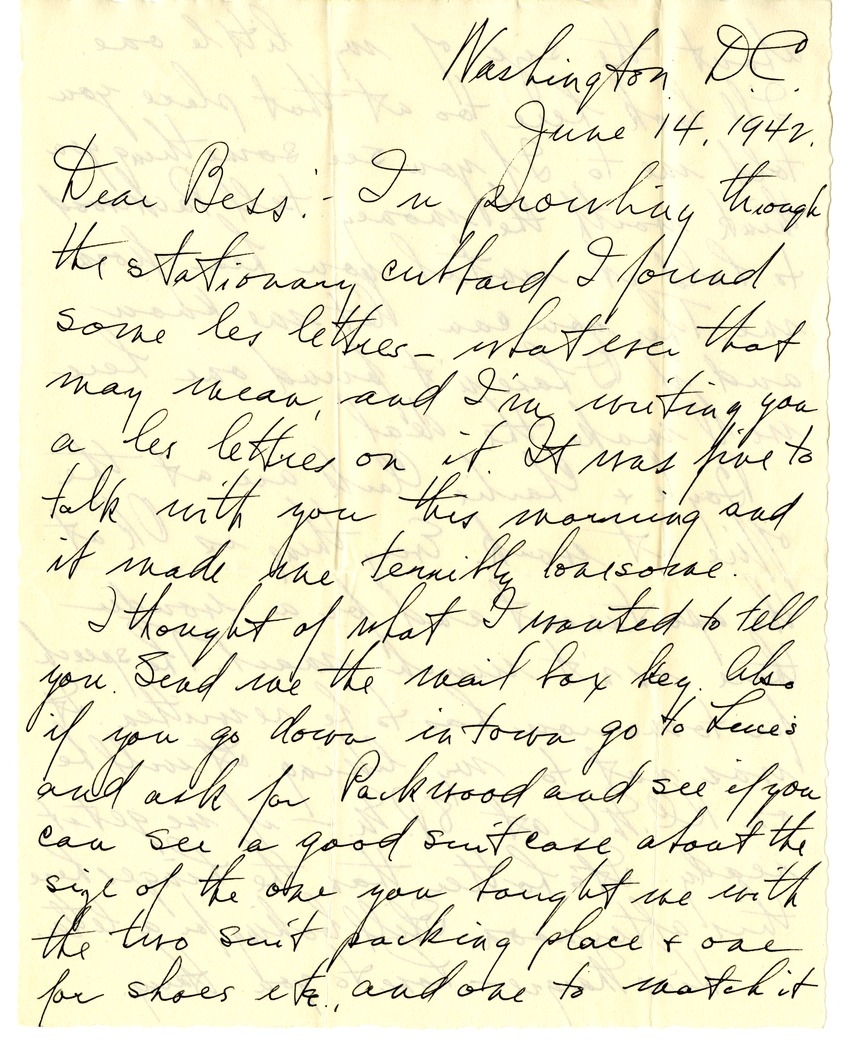 Washington, D.C.
June 14, 1942.
Dear Bess:- In prowling through
the stationary cubbard I found
some les lettres - whatever that
may mean, and I'm writing you
a les lettres on it. It was fine to
talk with you this morning and
it made me terribly lonesome.
I thought of what I wanted to tell
you. Send me the mail box key. Also
if you go down in town go to
and ask for Packwood and see if you
can see a good suit case about the
size of the one you bought me with
the two suit packing place & one
for shoes etc., and one to match it